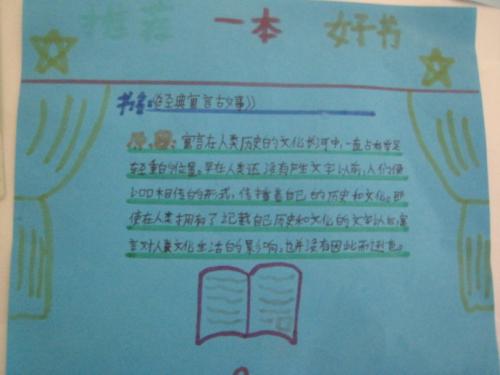 推荐 一本 好书
书名:《经典寓言故事》
内容:寓言在人类历史的文化长河中,一直占有举足
轻重的位置。早在人类还没有产生文字以前,人们便
以口口相传的形式,传播着自己的历史和文化。即
使在人类拥有了记载自己历史和文化的文字以后,寓
言对人类文化生活的影响,也并没有因此而逊色。